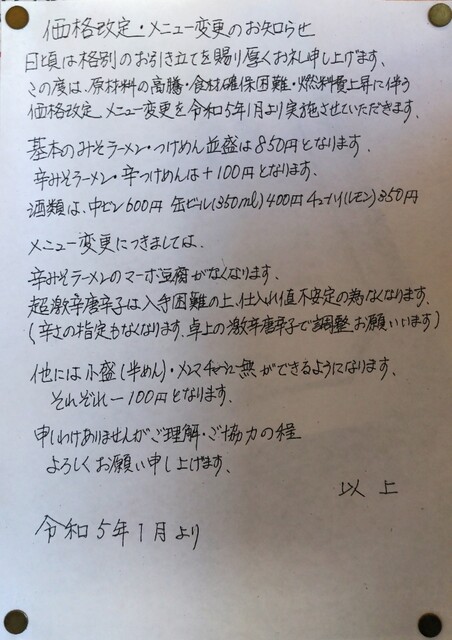 価格改定・メニュー変更のお知らせ
日頃は格別のお引き立てを賜り厚くお礼申し上げます、
この度は、原材料の高騰・食材確保困難・燃料費上昇に伴う
価格改定 メニュー変更を令和5年1月より実施させていただきます.
基本のみそラーメン・つけめん並盛は850円となります.
辛みそラーメン・辛つけめんは+100円となります.
酒類は、中ビン600円 缶ビール(350ml)400円 チューハイ(レモン)350円
メニュー変更につきましては、
辛みそラーメンのマーボ豆腐がなくなります、
超激辛唐辛子は入手困難の上、仕入れ値不安定の為なくなります、
(辛さの指定もなくなります、卓上の激辛唐辛子で調整お願いします)
他には小盛(半めん)・メンマ チャーシュー無ができるようになります.
それぞれー100円となります、
申しわけありませんがご理解・ご協力の程
よろしくお願い申し上げます、
以上
令和5年1月より